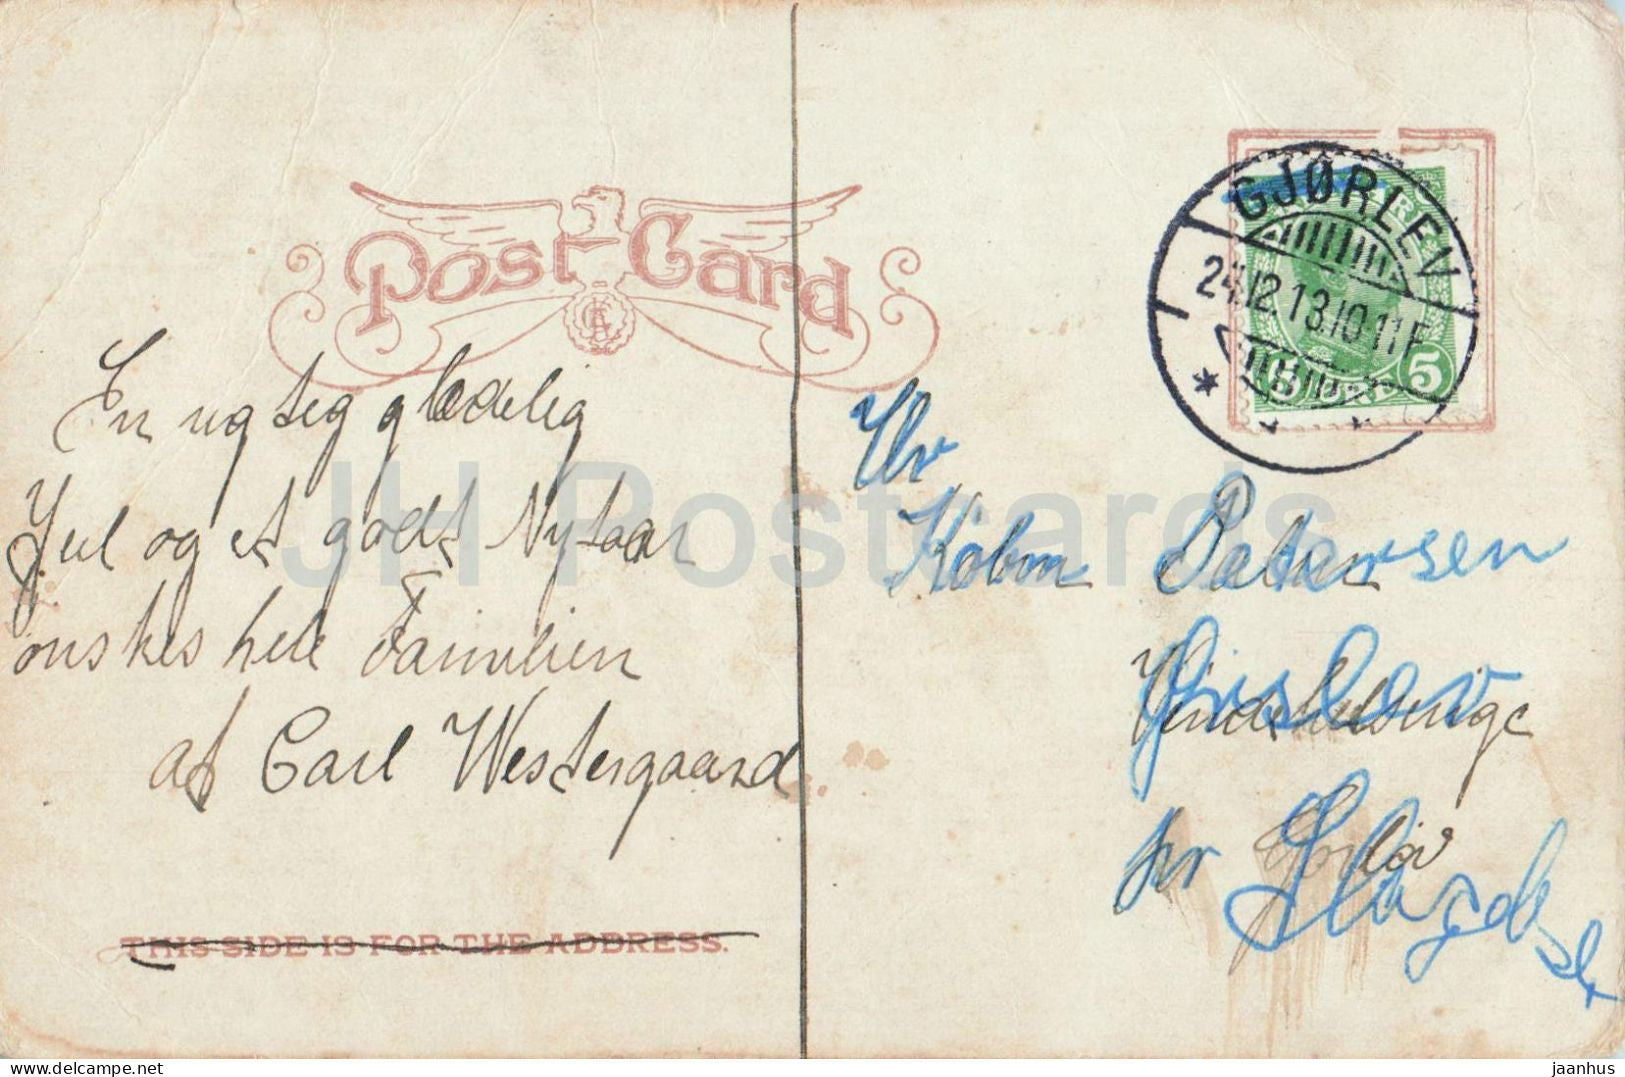 Post Card
En rigtig glædelig
Jul og et godt Nytaar
ønskes hele Familien
af Carl Westergaard
THIS SIDE IS FOR THE ADDRESS.
GJØRLEV
24.12.13.10.11F
5 ØRE
Hr
Købm Petersen
pr
JH Postcards
© JH Postcards
jaanhus